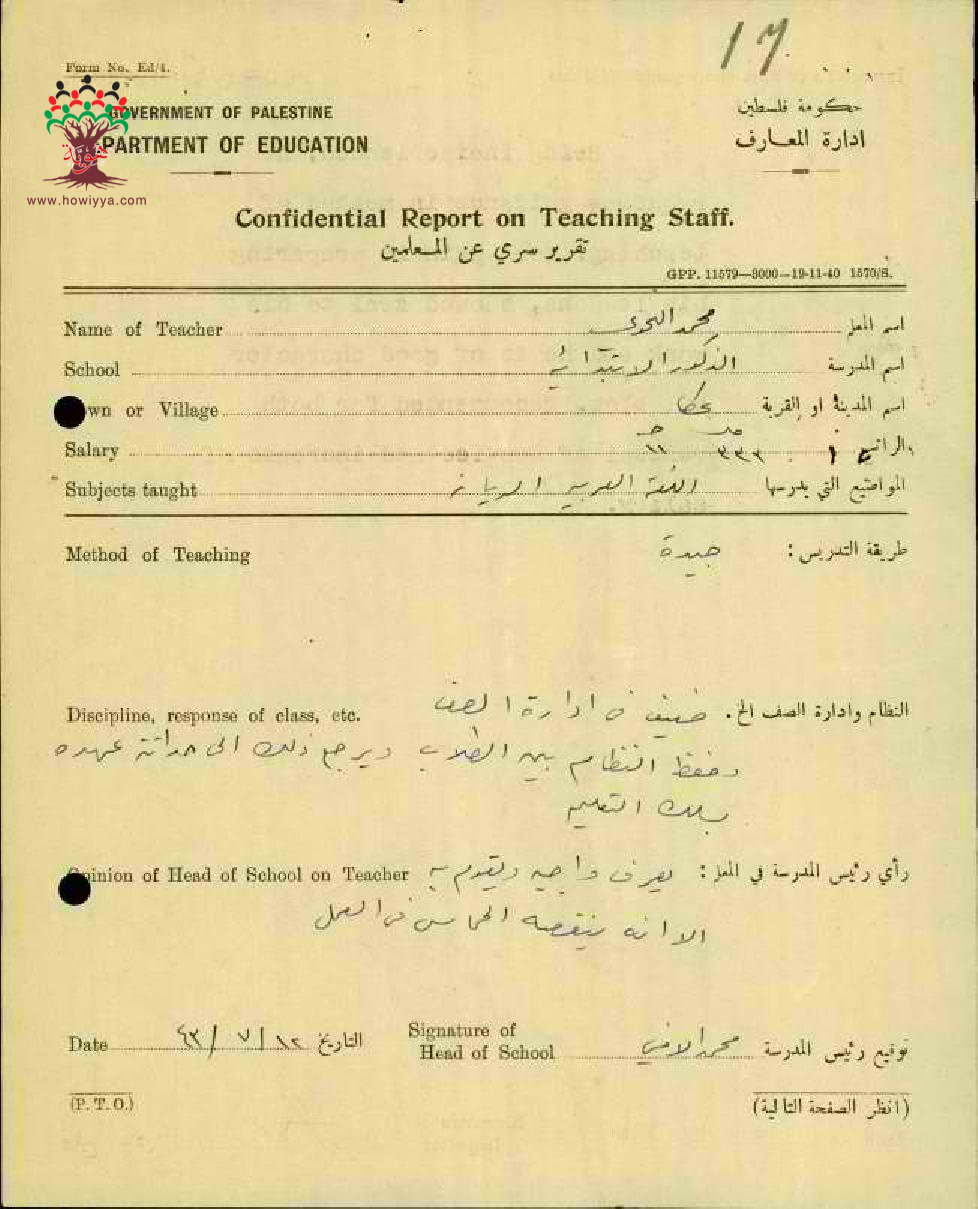 17.
Form No. Ed/4.
GOVERNMENT OF PALESTINE
حكومة فلسطين
PARTMENT OF EDUCATION
ادارة المعارف
www.howiyya.com
Confidential Report on Teaching Staff.
تقرير سري عن المعلمين
GPP. 11579—8000—19-11-40 1570/S.
Name of Teacher محمد اسم المعلم
School الذكور الابتدائية اسم المدرسة
wn or Village عكا اسم المدينة او القرية
Salary الراتب
Subjects taught اللغة العربية المواضيع التي يدرسها
Method of Teaching جيدة طريقة التدريس :
Discipline, response of class, etc. النظام وادارة الصف الخ . ضعيف في ادارة الصف
وحفظ النظام بين الطلاب ويرجع ذلك الى حداثة عهده
بسلك التعليم
pinion of Head of School on Teacher رأي رئيس المدرسة في المعلم : يعرف واجبه ويقوم به
الا انه ينقصه الحماس في العمل
Date ١٢ / ٧ / ٤٣ التاريخ Signature of
Head of School محمد توقيع رئيس المدرسة
(P. T. O.) (انظر الصفحة التالية)